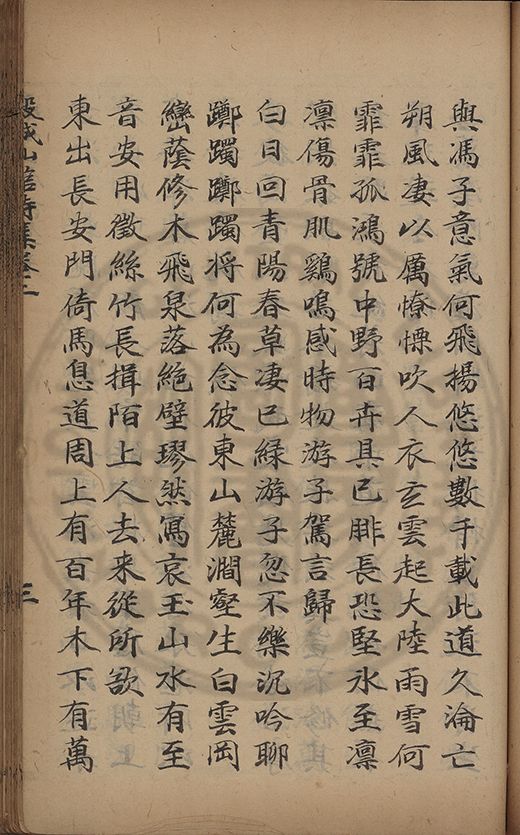 與馮子意氣何飛揚悠悠數千載此道久淪亡
朔風凄以厲憭慄吹人衣玄雲起大陸雨雪何
霏霏孤鴻號中野百卉具已腓長恐堅冰至凛
凛傷骨肌鷄鳴感時物游子駕言歸
白日回青陽春草凄已綠游子忽不樂沉吟聊
躑躅躑躅將何為念彼東山麓澗壑生白雲岡
巒蔭修木飛泉落絕壁璆然寫哀玉山水有至
音安用徵絲竹長揖陌上人去来從所欲
東出長安門倚馬息道周上有百年木下有萬
穀城山館詩集卷二
三